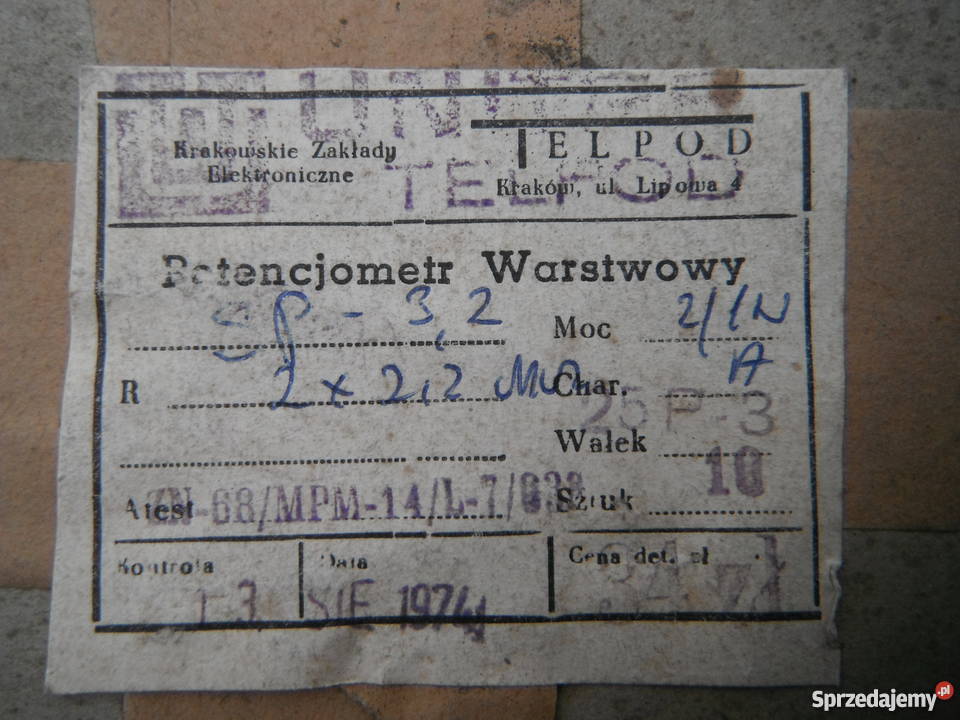 UNITRA
TELPOD
Krakowskie Zakłady
Elektroniczne
TELPOD
Kraków, ul. Lipowa 4
Potencjometr Warstwowy
SP - 3,2
Moc 2/1W
R 2 x 2,2 MΩ
Char. A
25P-3
Wałek
Atest ZN-68/MPM-14/L-7/033
Sztuk 10
Kontrola
Data
Cena det. zł
SIE 1974
Sprzedajemy.pl